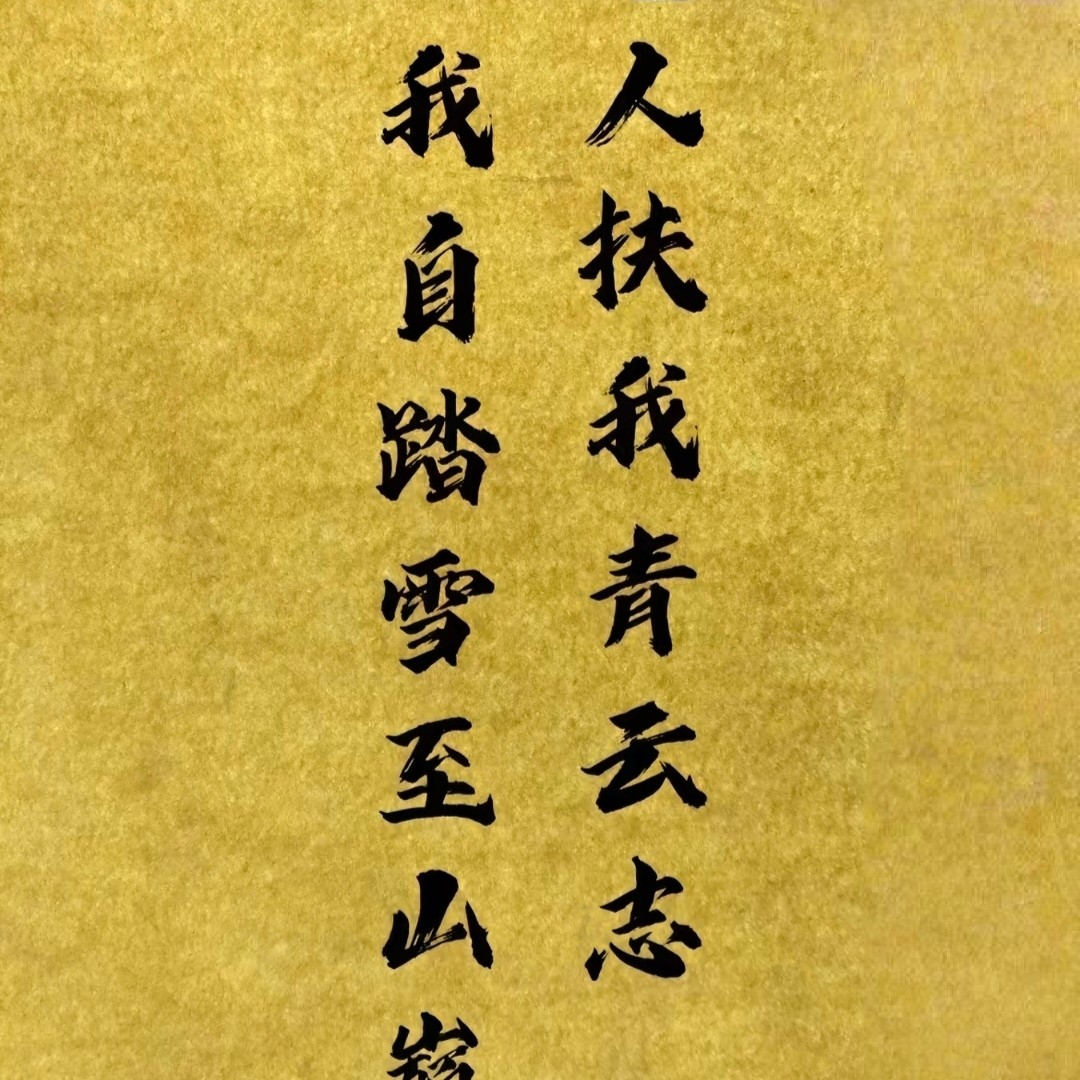 人扶我青云志
我自踏雪至山